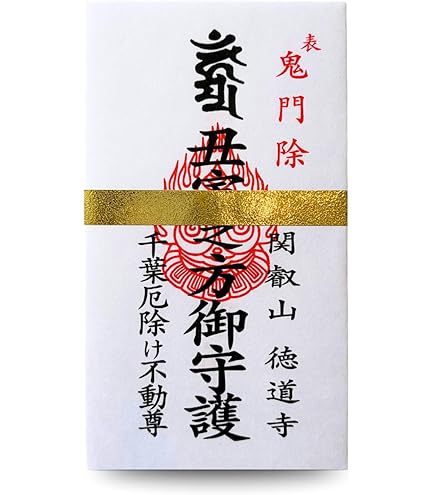 表
鬼門除
関叡山 徳道寺
丑寅之方御守護
千葉厄除け不動尊